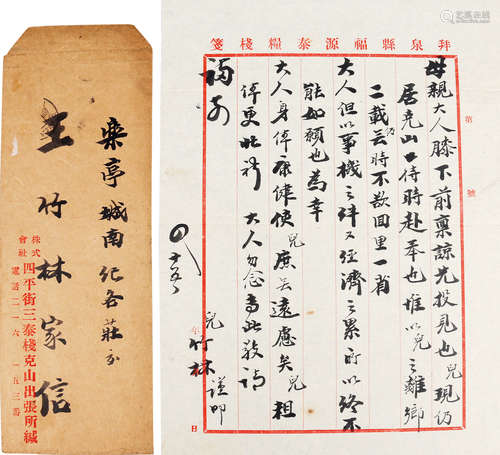 樂亭城南紀各莊交
王竹林家信
株式會社 四平街三泰棧克山出張所緘
電話二一六 一五三番
拜泉縣福源泰糧棧箋
第 號
母親大人膝下前稟諒先投見也兒現仍
居克山工侍時赴奉也惟以兒之離鄉
二載無時不欲回里一省
大人但以事機之絆又經濟之累所以終不
能如願也為幸
大人身體康健使兒庶無遠慮矣兒粗
體更比 大人勿念專此敬請
福安
兒竹林謹叩
年 日